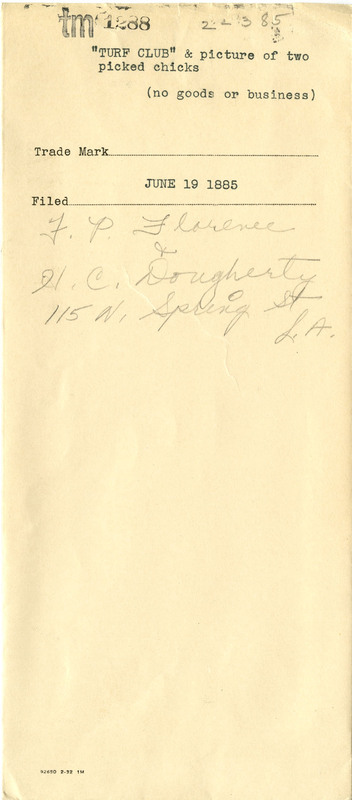 tm 1288 22385
"TURF CLUB" & picture of two
picked chicks
(no goods or business)
Trade Mark
JUNE 19 1885
Filed
F. P. Florence
&
H. C. Dougherty
115 N. Spring St
L.A.
92650 2-52 1M